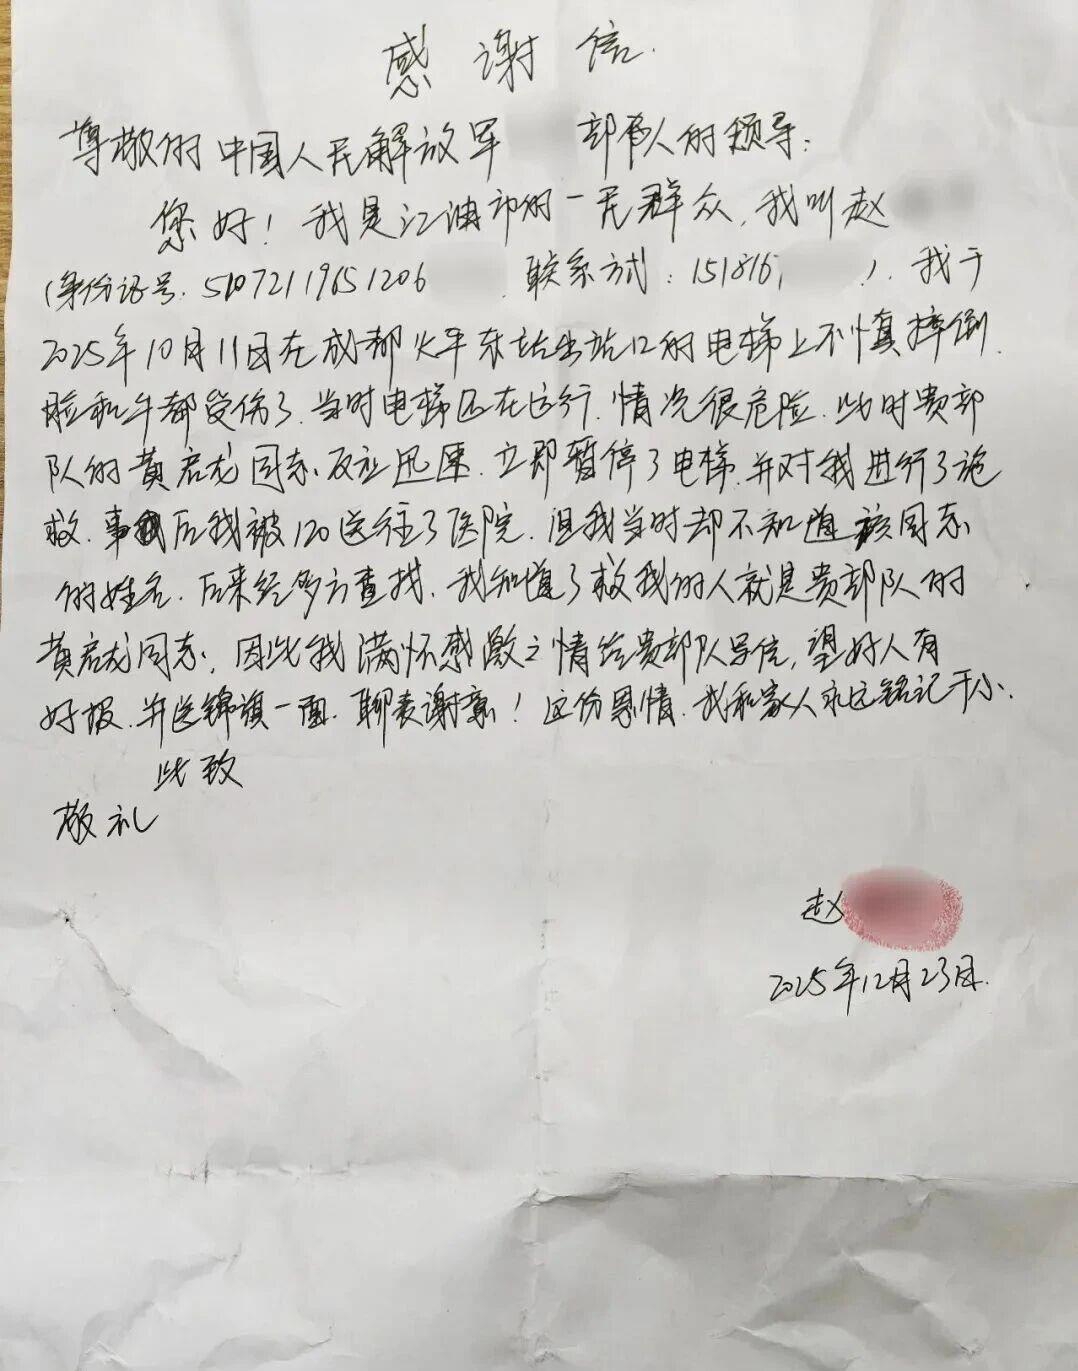 感谢信
尊敬的中国人民解放军 部队的领导:
您好!我是江油市的一民群众,我叫赵
(身份证号:51072119651206 联系方式:151816 ).我于
2025年10月11日在成都火车东站出站口的电梯上不慎摔倒.
脸和牛都受伤了.当时电梯还在运行.情况很危险.此时贵部
队的黄启龙同志反应迅速.立即暂停了电梯.并对我进行了施
救.事后我被120送往了医院.但我当时却不知道该同志
的姓名.后来经多方查找.我知道了救我的人就是贵部队的
黄启龙同志.因此我满怀感激之情给贵部队写信,望好人有
好报.并送锦旗一面.聊表谢意!这份恩情.我和家人永远铭记于心.
此致
敬礼
赵
2025年12月23日.